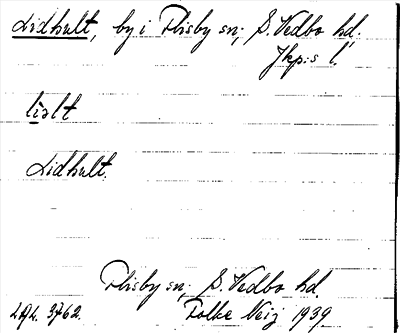 Lidhult, by i Flisby sn; S. Vedbo hd.
Jkp:s l.
lìslt
Lidhult.
Flisby sn; S. Vedbo hd.
292. 3762. Folke Neij 1939